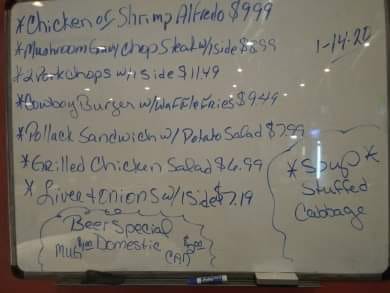 *Chicken or Shrimp Alfredo $9.99
*Mushroom Gravy Chop Steak w/1 side $8.99
1-14-20
*2 Pork chops w/1 side $11.49
*Cowboy Burger w/Waffle Fries $9.49
*Pollack Sandwich w/ Potato Salad $7.99
*Grilled Chicken Salad $6.99
*Liver + Onions w/1 Side $7.19
*Soup*
Stuffed
Cabbage
Beer Special
Domestic
Mug
Can